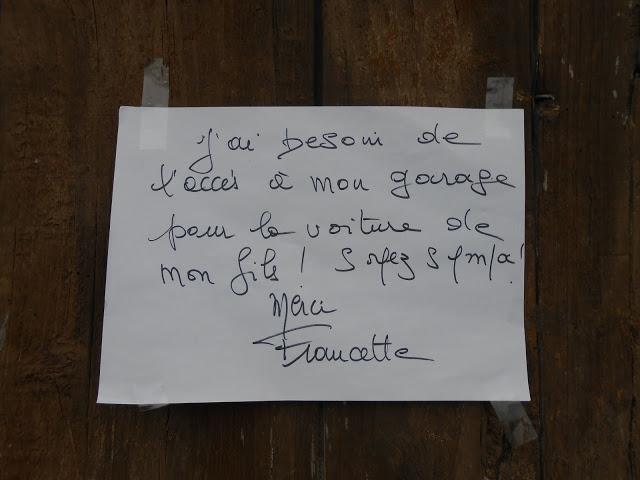 J'ai besoin de
l'accès à mon garage
pour la voiture de
mon fils ! Soyez sympa !
Merci
Francette